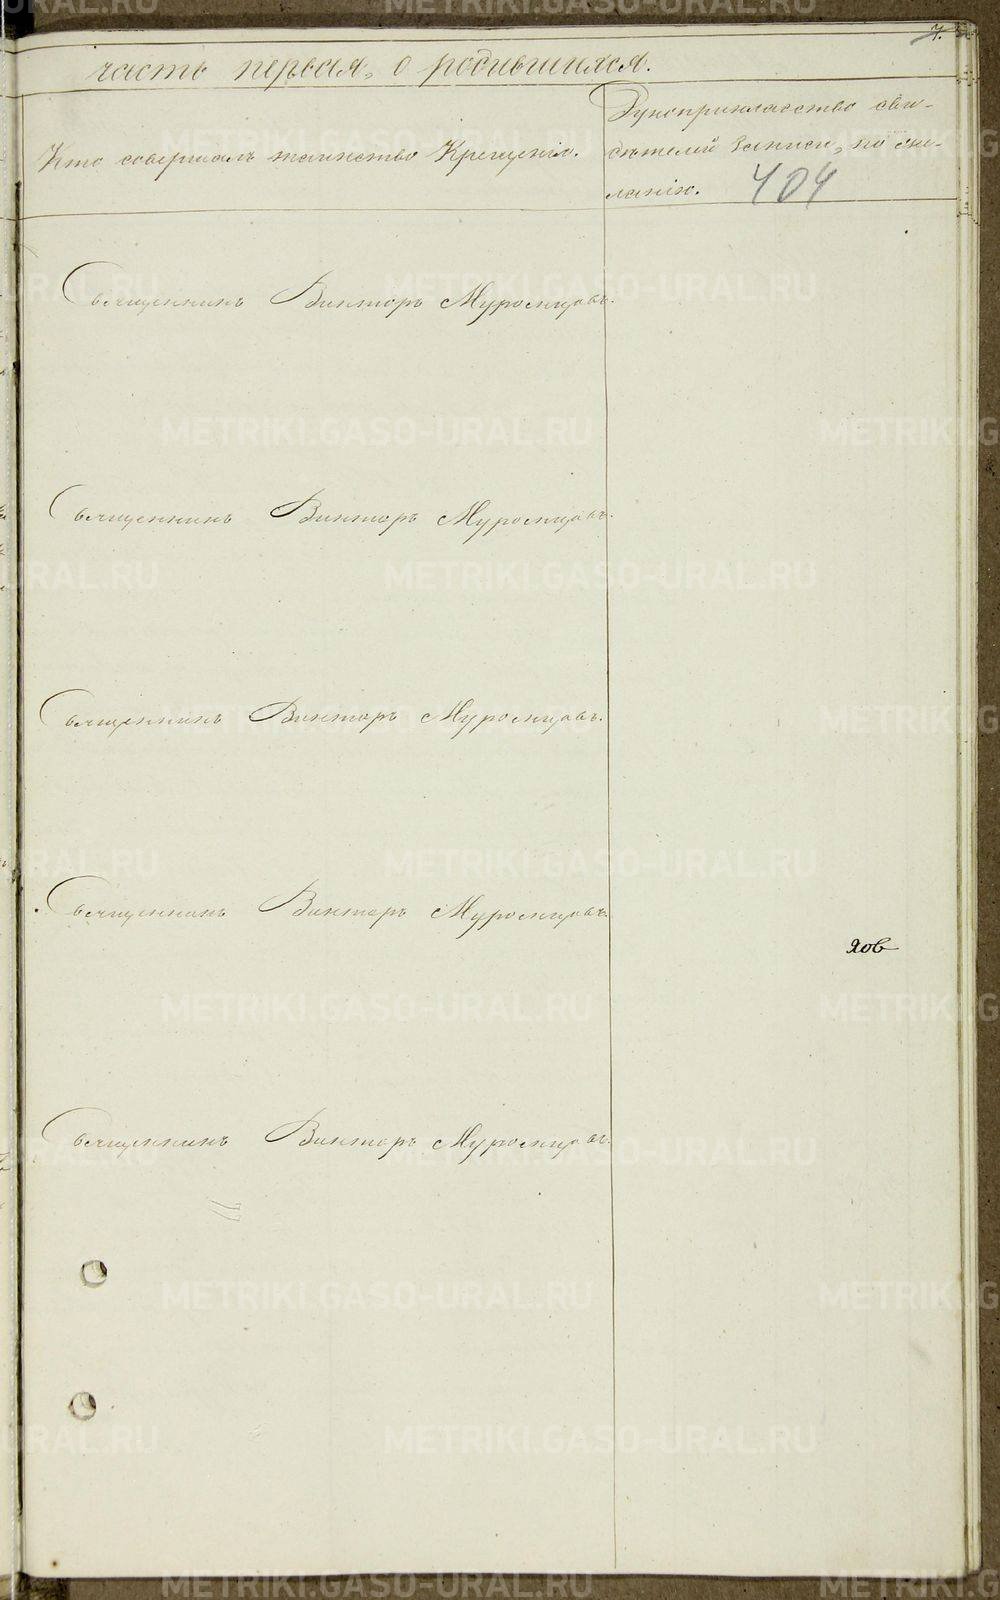 7.
часть первая, о родившихся.
Кто совершалъ таинство Крещенія.
Рукоприкладство сви-
дѣтелей записи, по же-
ланію.
404
Священникъ Викторъ Муромцовъ.
Священникъ Викторъ Муромцовъ.
Священникъ Викторъ Муромцовъ.
Священникъ Викторъ Муромцовъ.
ков
Священникъ Викторъ Муромцовъ.
METRIKI.GASO-URAL.RU